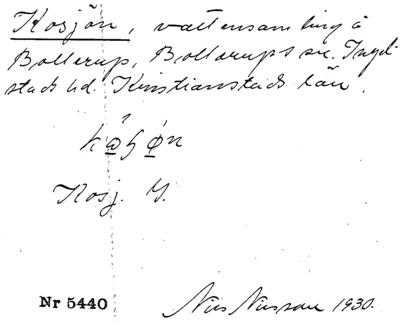 Kosjön, vattensamling å
Bollerup, Bollerups sn. Ingel-
stads hd. Kristianstads län.
Kosj. Y.
Nr 5440 Nils Nilsson 1930.